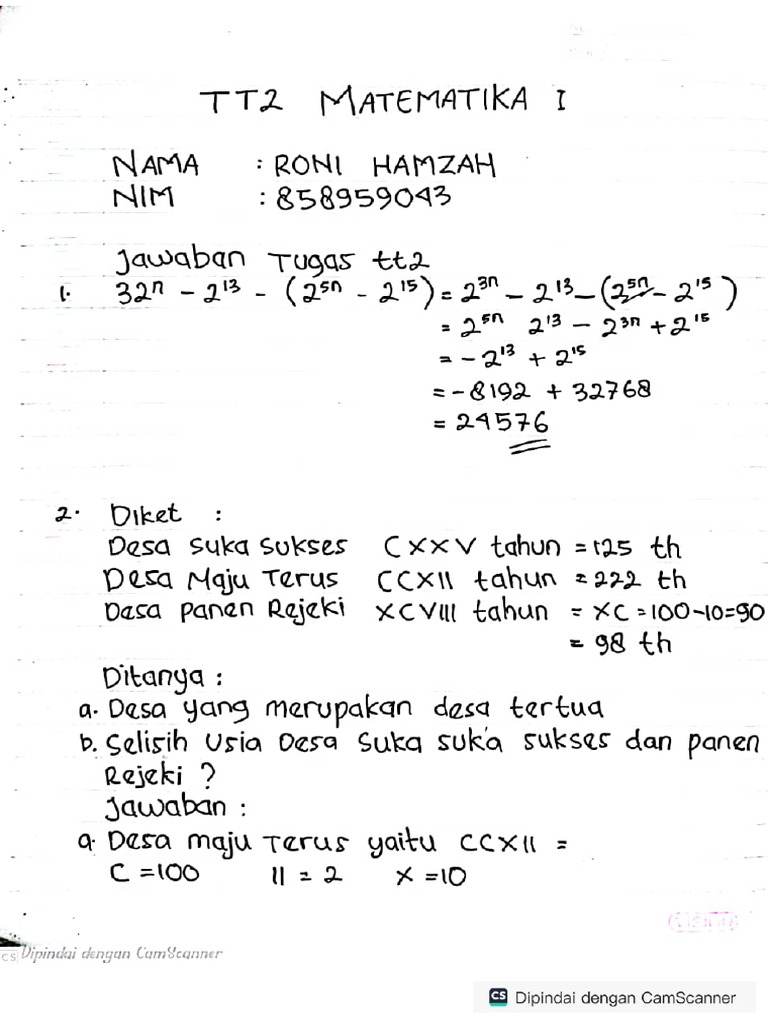 TT2 MATEMATIKA I
NAMA : RONI HAMZAH
NIM : 858959043
Jawaban Tugas tt2
1. 32ⁿ - 2¹³ - (2⁵ⁿ - 2¹⁵) = 2³ⁿ - 2¹³ - (2⁵ⁿ - 2¹⁵)
= 2⁵ⁿ 2¹³ - 2³ⁿ + 2¹⁵
= - 2¹³ + 2¹⁵
= - 8192 + 32768
= 24576
2. Diket :
Desa Suka Sukses CXXV tahun = 125 th
Desa Maju Terus CCXII tahun = 222 th
Desa Panen Rejeki XCVIII tahun = XC = 100-10=90
= 98 th
Ditanya :
a. Desa yang merupakan desa tertua
b. Selisih Usia Desa Suka suka sukses dan panen
Rejeki ?
Jawaban :
a. Desa maju Terus yaitu CCXII =
C = 100 II = 2 X = 10
CS Dipindai dengan CamScanner
CS Dipindai dengan CamScanner